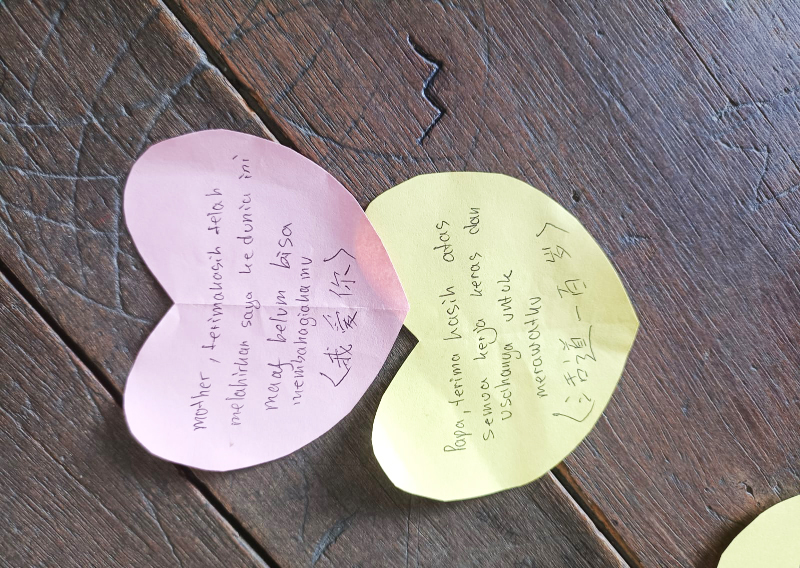 mother, terimakasih telah
melahirkan saya ke dunia ini
maaf belum bisa
membahagiakamu
<我爱你>
Papa, terima kasih atas
semua kerja keras dan
usahanya untuk
merawatku
<活道一百岁>